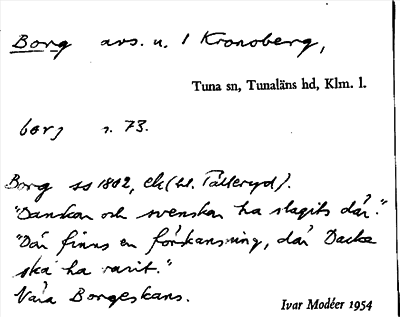 Borg avs. u. 1 Kronoberg,
Tuna sn, Tunaläns hd, Klm. l.
borj s. 73.
Borg so 1802, ek (hl. Tälleryd).
"Danskan och svenskan ha slagits där."
"Där finns en förskansning, där Dacke
ska ha varit."
Våra Borgeskans.
Ivar Modéer 1954